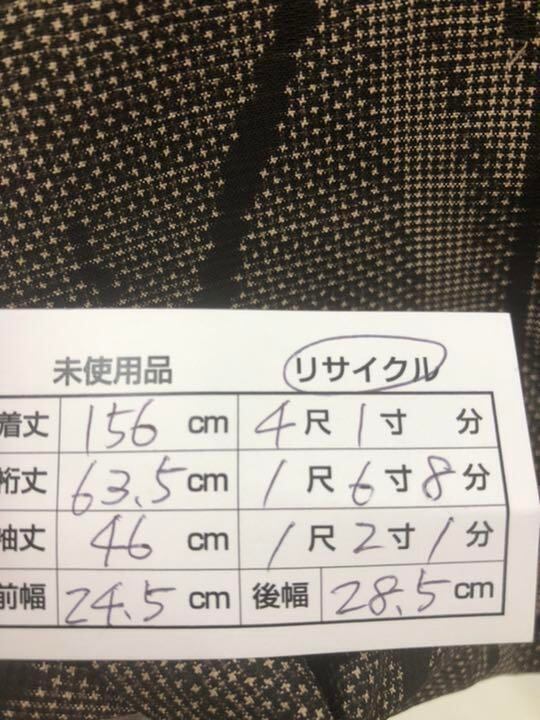 未使用品 リサイクル
着丈 156 cm 4尺 1寸 分
裄丈 63.5cm 1尺 6寸 8分
袖丈 46 cm 1尺 2寸 1分
前幅 24.5 cm 後幅 28.5 cm